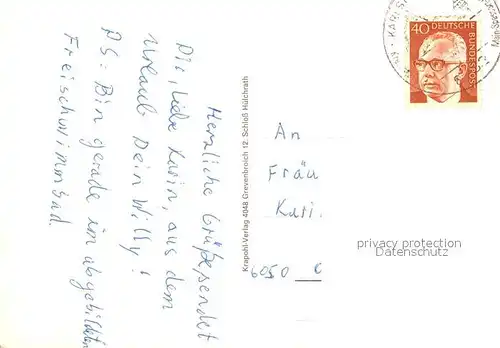 Herzliche Grüße sendet
Dir, liebe Karin, aus dem
Urlaub Dein Willy!
PS: Bin gerade im abgebildeten
Freischwimmbad.
Krapohl-Verlag 4048 Grevenbroich 12. Schloß Hülchrath
40 DEUTSCHE BUNDESPOST
An
Frau
Kari.
6050
privacy protection
Datenschutz